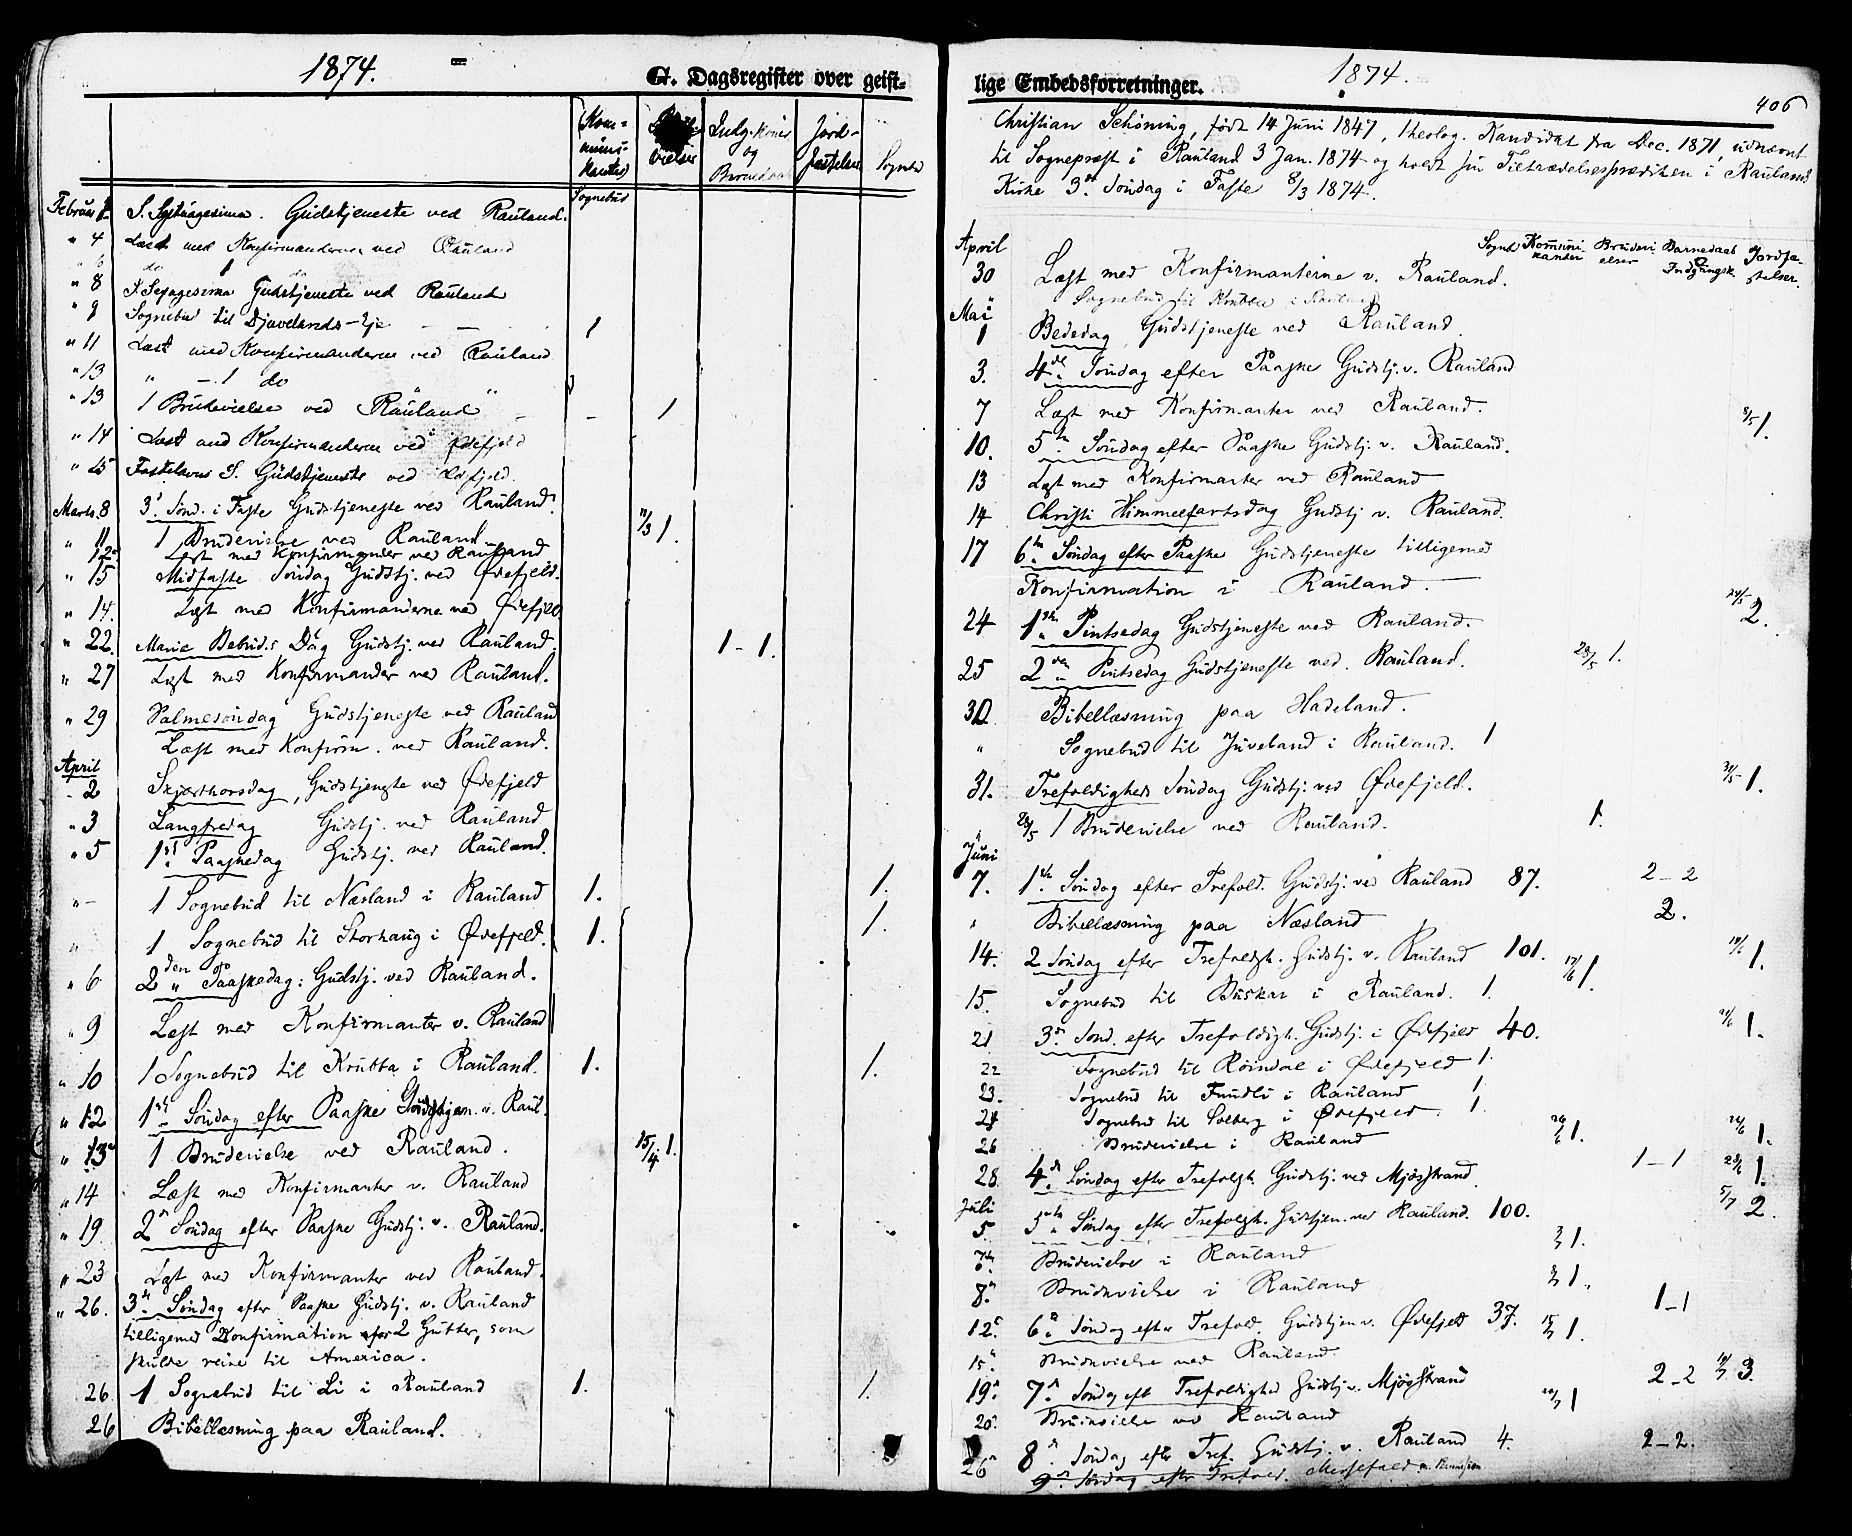 1874.
G. Dagsregister over geist-
Kommunikanter
vielser
Indg. Koner og Barnedaab
Jord-fæstelser
Sognebud
Sognebud
Februar 1 S. Septuagesima. Gudstjeneste ved Rauland.
" 4 Læst med Konfirmanderne ved Rauland
" 6 do 1 do
" 8 S. Sexagesima Gudstjeneste ved Rauland
" 9 Sognebud til Djuvelands-Eje - - 1
" 11 Læst med Konfirmanderne ved Rauland
" 13 " - 1 do " "
" 13 1 Brudevielse ved Rauland - - 1
" 14 Læst med Konfirmanderne ved Øifjeld
" 15 Fastelavns S. Gudstjeneste ved Øifjeld.
Marts. 8 3. Sønd. i Faste Gudstjeneste ved Rauland.
" 11 1 Brudevielse ved Rauland 11/3 1.
12 Læst med Konfirmander ved Rauland
" 15 Midfaste Søndag Gudstj. ved Øvefjeld.
" 14. Læst med Konfirmanderne ved Øvefjeld
" 22. Marie Bebud.s Dag Gudstj. ved Rauland. 1-1.
" 27 Læst med Konfirmander ved Rauland.
" 29 Palmesøndag Gudstjeneste ved Rauland
Læst med Konfirm. ved Rauland.
April
- 2 Skjærthorsdag, Gudstjeneste ved Øvefjeld
" 3 Langfredag Gudstj. ved Rauland
" 5 1st Paaskedag Gudstj. ved Rauland.
" - 1 Sognebud til Næsland i Rauland 1. 1.
" 1 Sognebud til Storhaug i Øvefjeld. 1. 1.
" 6 2den Paaskedag: Gudstj. ved Rauland.
" 9 Læst med Konfirmanter v. Rauland
" 10 1 Sognebud til Krubba i Rauland. 1. 1.
" 12 1st Søndag efter Paaske Gudstjen. v. Raul.
" 13 1 Brudevielse ved Rauland. 15/4 1.
" 14 Læst med Konfirmanter v. Rauland
" 19. 2n Søndag efter Paaske Gudstj. v. Rauland.
" 23 Læst med Konfirmanter ved Rauland.
" 26. 3die Søndag efter Paaske Gudstj. v. Rauland
tilligemed Konfirmation for 2 Gutter, som
skulde reise til America.
26 1 Sognebud til Li i Rauland 1. 1.
26 Bibellæsning paa Rauland.
lige Embedsforretninger.
1874.
406
Christian Schöning, født 14 Juni 1847, theolog. Kandidat fra Dec. 1871 udnævnt
til Sognepræst i Rauland 3 Jan. 1874 og holdt sin Tiltrædelsesprædiken i Raulands
Kirke 3die Søndag i Faste 8/3 1874.
Sognebud Kommunikanter Brudevielser Barnedaab & Indgangsk. Jordfæstelser.
April
30 Læst med Konfirmanterne v. Rauland.
Sognebud til Krubba i Rauland
Mai
1 Bededag, Gudstjeneste ved Rauland.
3. 4de Søndag efter Paaske Gudstj. v. Rauland
7 Læst med Konfirmanter ved Rauland. 8/5 1.
10. 5te Søndag efter Paaske Gudstj. v. Rauland.
13 Læst med Konfirmanter ved Rauland
14 Christi Himmelfartsdag Gudstj v. Rauland.
17 6te Søndag efter Paaske Gudstjeneste tilligemed
Konfirmation i Rauland.
24 1ste Pintsedag Gudstjeneste ved Rauland. 24/5 2.
25 2den Pintsedag Gudstjeneste ved. Rauland. 28/5 1.
30 Bibellæsning paa Hadeland.
" Sognebud til Juveland i Rauland. 1
31. Trefoldigheds Søndag Gudstj. ved Øvefjeld. 31/5 1.
" 28/5 1 Brudevielse ved Rauland. 1.
Juni
7. 1ste Søndag efter Trefold. Gudstj. ved Rauland 87. 2-2
" Bibellæsning paa Næsland 2.
14. 2 Søndag efter Trefoldgh. Gudstj. v. Rauland 101. 17/6 1. 1.
15. Sognebud til Buskar i Rauland. 1.
21 3die Sønd. efter Trefoldigh. Gudstj. i Øvefjeld 40. 21/6 1.
22 Sognebud til Røindal i Øvefjeld 1.
23. Sognebud til Fundli i Rauland 1.
24 Sognebud til Solberg i Øvefjeld. 1.
26 Brudevielse i Rauland 26/6 1. 1.
28. 4de Søndag efter Trefoldgh. Gudstj. ved Mjøsstrand. 1-1 28/6 1.
Juli
5. 5te Søndag efter Trefoldgh. Gudstjen. ved Rauland. 100. 5/7 2.
7. Brudevielse i Rauland 1.
8. Brudevielse i Rauland 1.
12. 6te Søndag efter Trefold. Gudstjen v. Øvefjeld 37. 1. 1-1
15. Brudevielse ved Rauland.
19. 7de Søndag eft Trefoldighed Gudstj. v. Mjøsstrand 2-2 3.
20. Brudevielse ved Rauland 1
26 8de Søndag efter Tref. Gudstj. v. Rauland 4. 2-2.
9de Søndag efter Trefold. Messefald